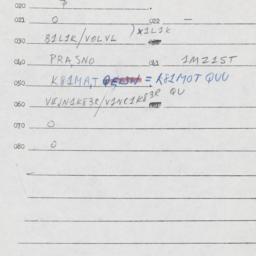 020 ?
021 0 022 —
030 B1L1K/VOLVL )X1L1K
040 PRA,SNO 041 1MZ1ST
050 K81MA,T = K81MOT QUU
060 VE,N1K83R/V1NC1K83R QU
070 0
080 0